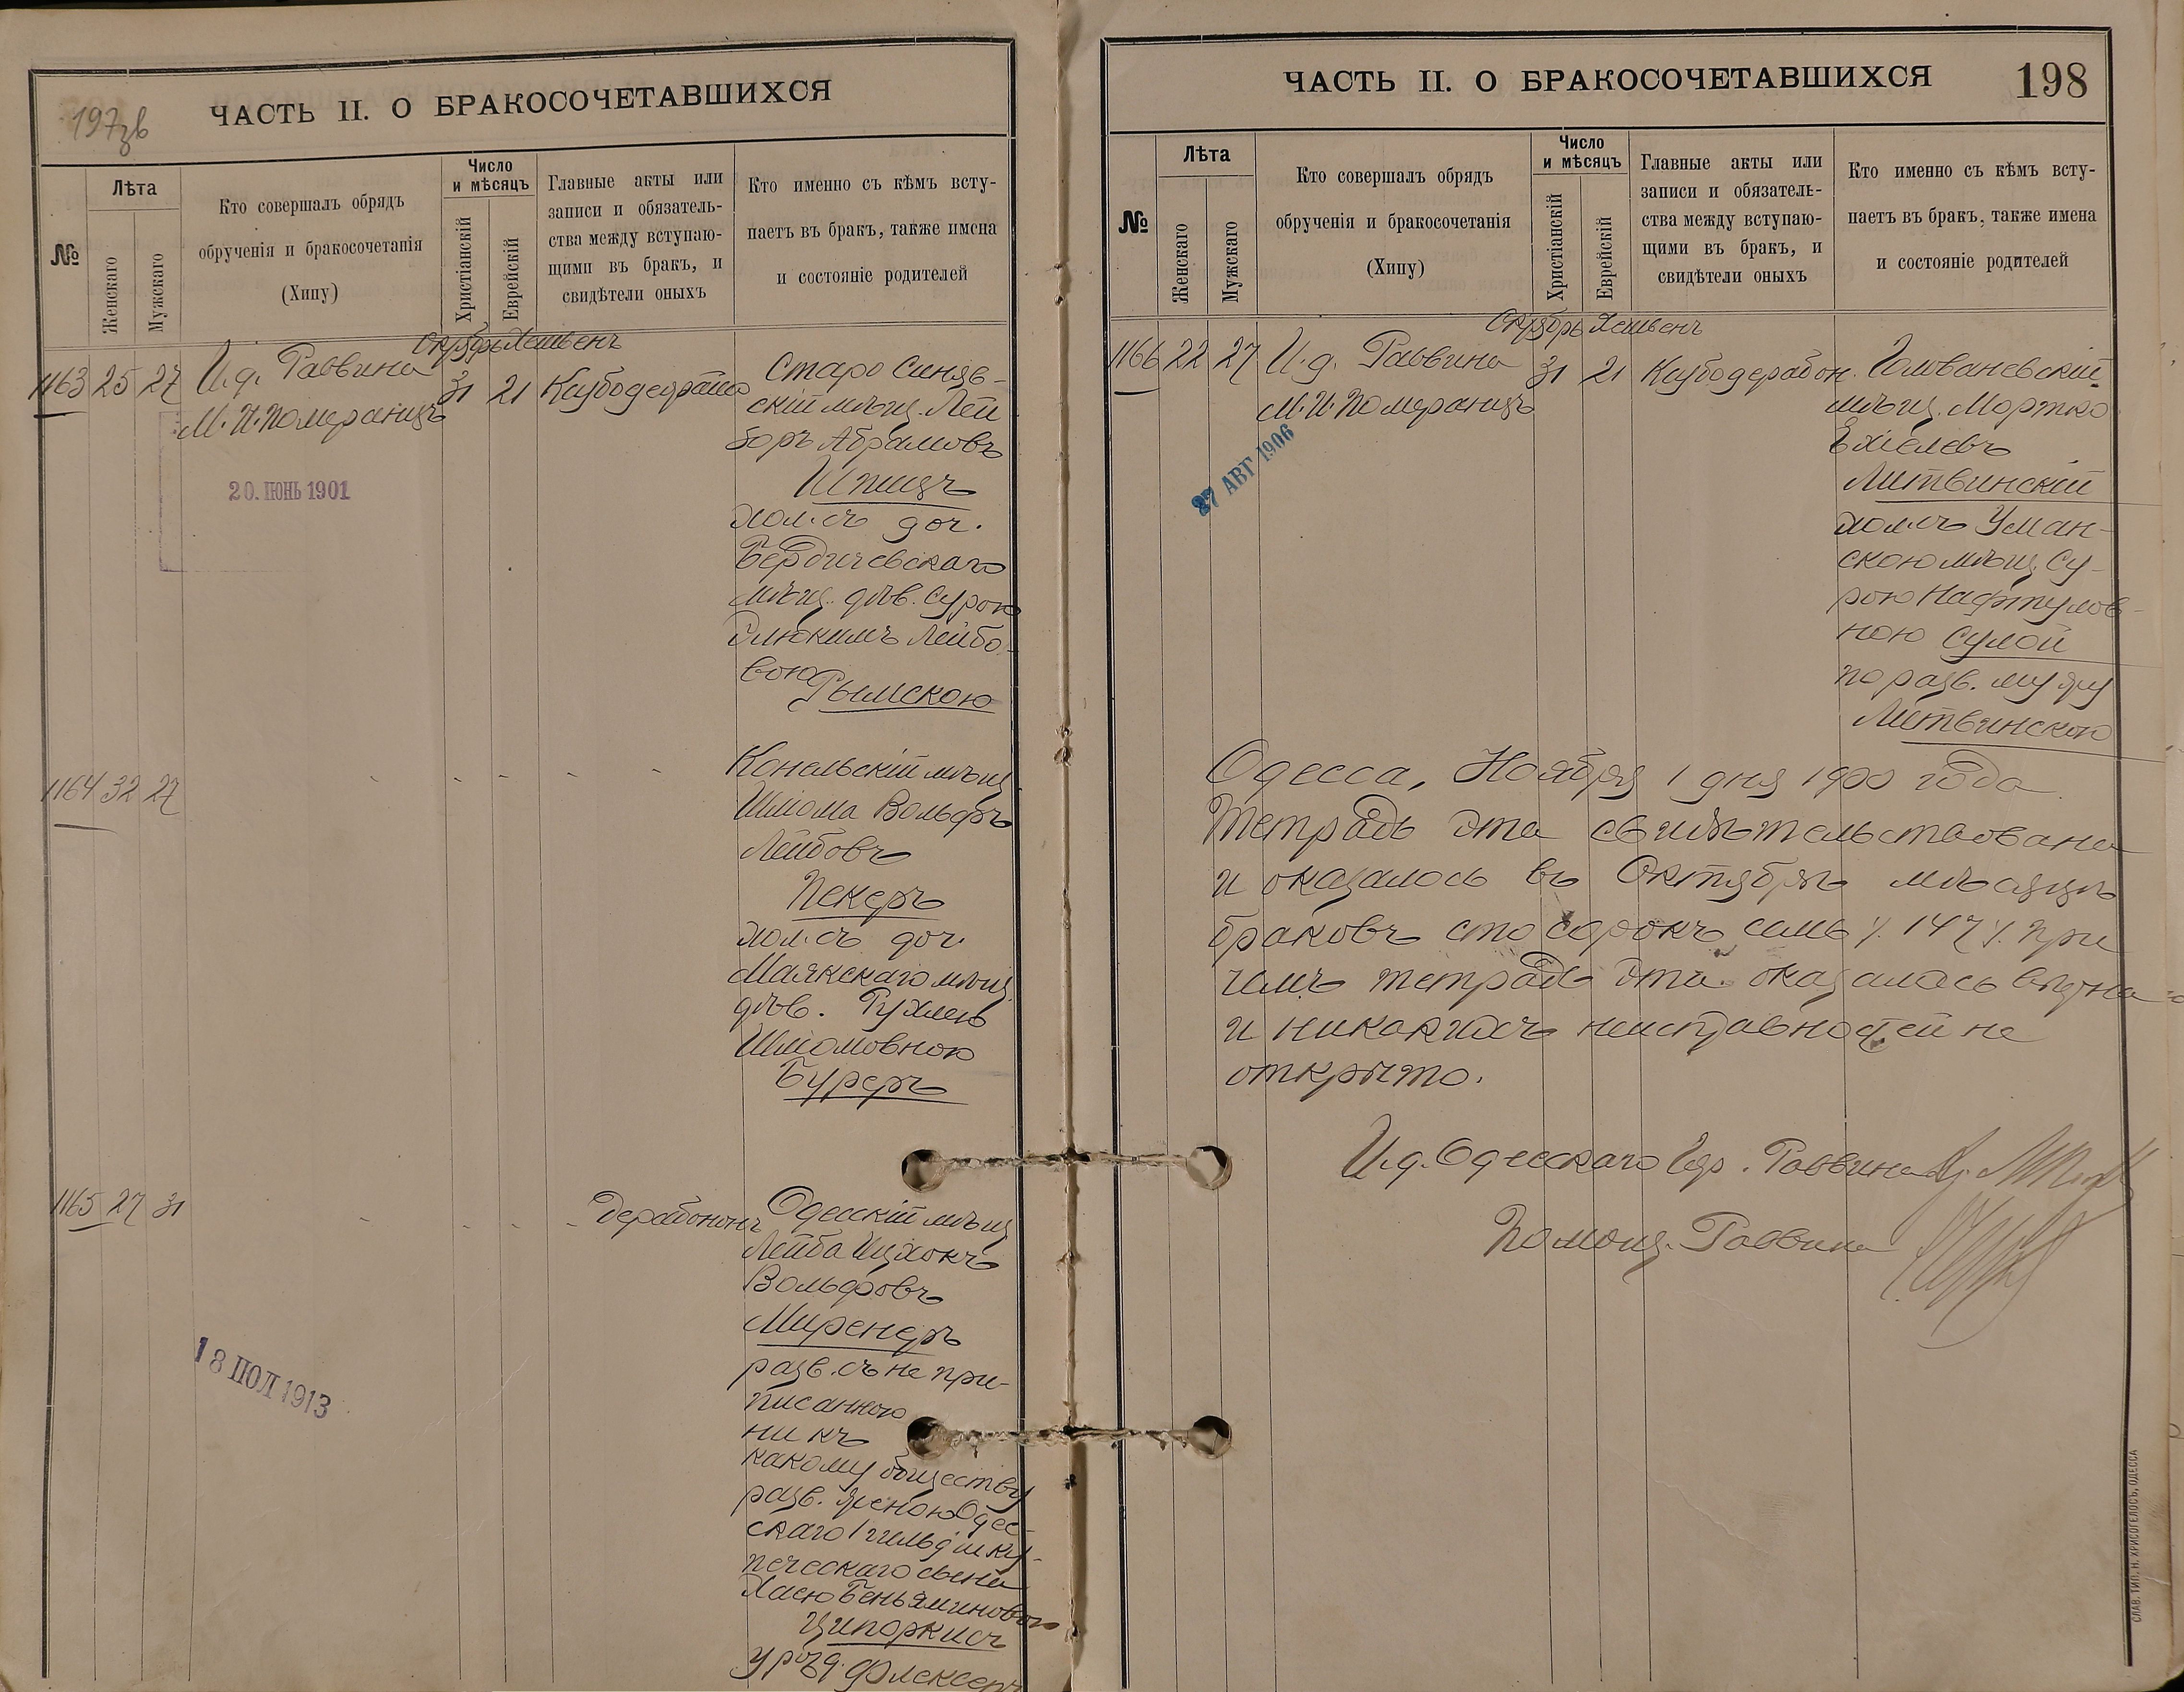 197зв
ЧАСТЬ II. О БРАКОСОЧЕТАВШИХСЯ
№
Лѣта
Женскаго
Мужскаго
Кто совершалъ обрядъ
обрученія и бракосочетанія
(Хипу)
Число
и мѣсяцъ
Христіанскій
Еврейскій
Главные акты или
записи и обязатель-
ства между вступаю-
щими въ бракъ, и
свидѣтели оныхъ
Кто именно съ кѣмъ всту-
паетъ въ бракъ, также имена
и состояніе родителей
Октябрь Хешвенъ
1163 25 27 И.д. Раввина 31 21
М.И. Померанцъ
20. ІЮНЬ 1901
Старо Синяв-
скій мѣщ. Лей
боръ Абрамовъ
Шпицъ
хол. съ доч.
Бердичевскаго
мѣщ. дѣв. Сурою
Элюкимъ Лейбо-
вою
Рымскою
1164 32 27
Конельскій мѣщ.
Шлiома Вольфъ
Лейбовъ
Пекеръ
хол. съ доч.
Маякскаго мѣщ.
дѣв. Рухлею
Шлiомовною
Буреръ
1165 27 31
Дерабононъ
Одесскій мѣщ.
Лейба Ицхокъ
Вольфовъ
Миренеръ
разв. съ не при-
писанною
ни къ
какому обществу
разв. женою Одес-
скаго 1 гильдіи ку-
печескаго сына
Хаею Беньяминовою
Ципоркисъ
урожд. Флексеръ
18 ІЮЛ 1913
ЧАСТЬ II. О БРАКОСОЧЕТАВШИХСЯ
198
№
Лѣта
Женскаго
Мужскаго
Кто совершалъ обрядъ
обрученія и бракосочетанія
(Хипу)
Число
и мѣсяцъ
Христіанскій
Еврейскій
Главные акты или
записи и обязатель-
ства между вступаю-
щими въ бракъ, и
свидѣтели оныхъ
Кто именно съ кѣмъ всту-
паетъ въ бракъ, также имена
и состояніе родителей
Октябрь Хешвенъ
1166 22 27 И.д. Раввина 31 21 Кцубо дерабон.
М.И. Померанцъ
27 АВГ 1906
Голованевскій
мѣщ. Мортко
Ехіелевъ
Литвинскій
хол. съ Уман-
скою мѣщ. Су-
рою Нафтулов-
ною Сулой
по разв. мужу
Литвинскою
Одесса, Ноября 1 дня 1900 года
Тетрадь эта свидѣтельствована
и оказалось въ Октябрѣ мѣсяцѣ
браковъ сто сорокъ семь /147/. При
чемъ тетрадь эта оказалась вѣрна
и никакихъ неисправностей не
открыто.
И.д. Одесскаго Гор. Раввина
Помощ. Раввина
СЛАВ. ТИП. Н. ХРИСОГЕЛОСЪ, ОДЕССА